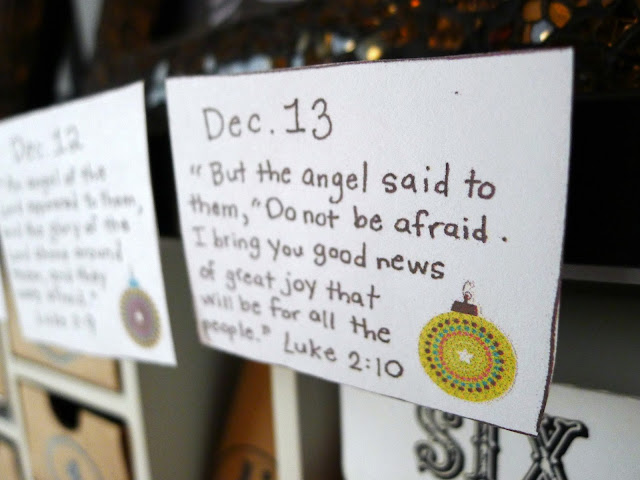 Dec. 12
angel of the
appeared to them,
and the glory of the
Lord shone around
them, and they
were afraid."
Luke 2:9
Dec. 13
"But the angel said to
them, "Do not be afraid.
I bring you good news
of great joy that
will be for all the
people." Luke 2:10
SIX